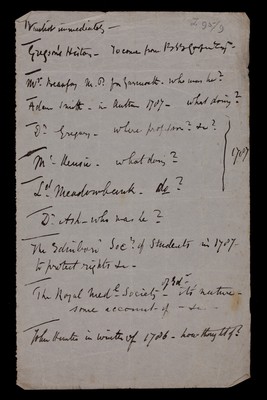 Wanted immediately -
Gregory's History - to come from
Mr. Beaufoy M.P. for Yarmouth - who was he?
Adam Smith - in Autumn 1787 - what doing?
Dr. Gregory - where professor? &c?
1787
Mc. Kensie - what doing?
Ld. Meadowbank - do ?
Dr. Ash - who was he?
The Edinburgh Socy. of Students in 1787
to protect rights &c -
The Royal Medl. Society of Edr. - its nature -
some account of - &c -
John Hunter in winter of 1786 - how thought of?